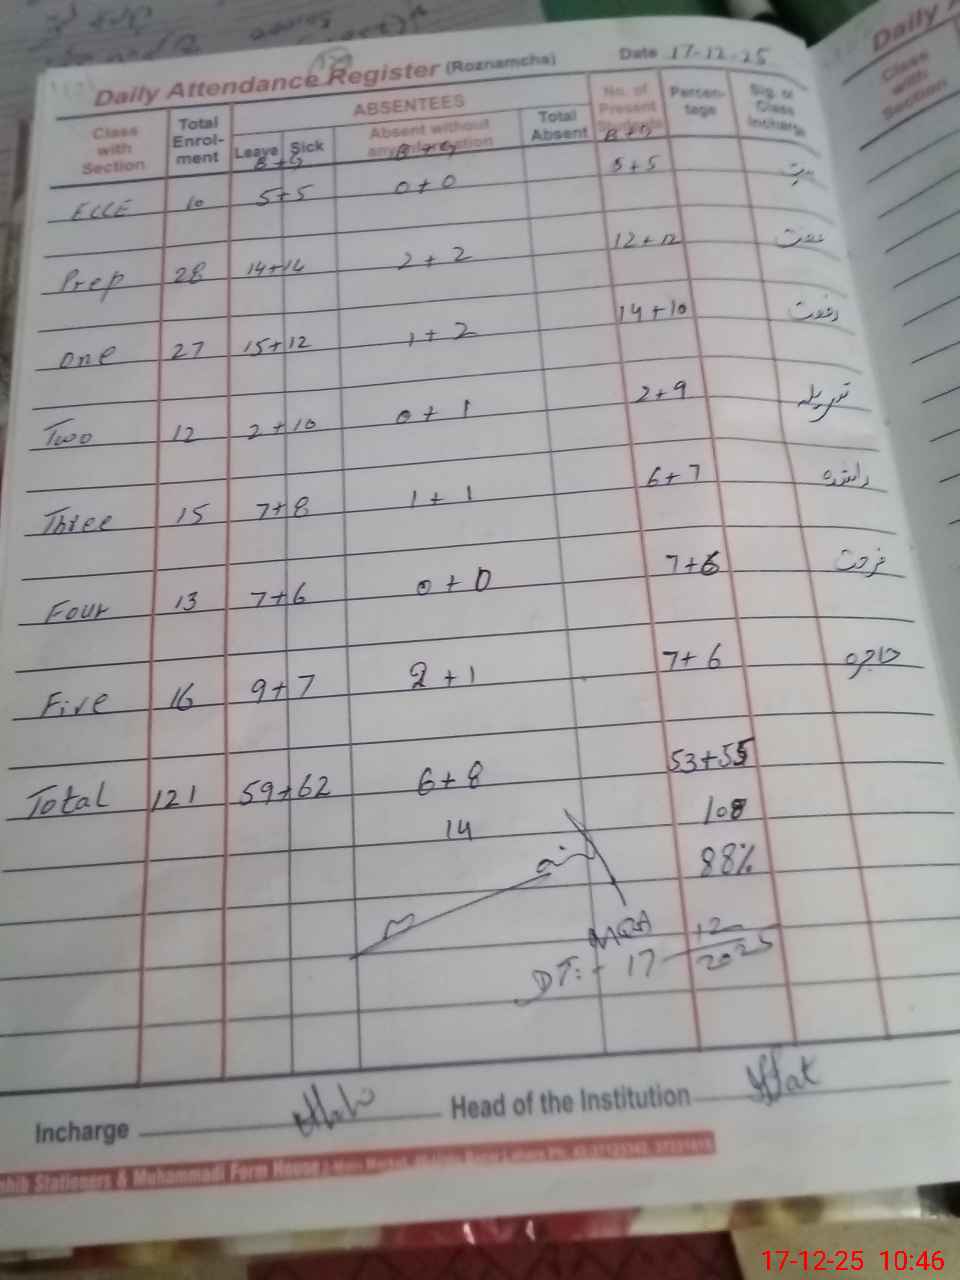 Daily Attendance Register (Roznamcha) Date 17-12-25
Class with Section Total Enrol-ment ABSENTEES No. of Present Students Percen-tage Sig. of Class Incharge
Leave Sick Absent without any information Total Absent
B + G B + G B + G
ECCE 10 5+5 0+0 5+5
Prep 28 14+14 2+2 12+12
One 27 15+12 1+2 14+10 رفعت
Two 12 2+10 0+1 2+9
Three 15 7+8 1+1 6+7 راشدہ
Four 13 7+6 0+0 7+6 فرحت
Five 16 9+7 2+1 7+6 حاجرہ
Total 121 59+62 6+8 53+55
14 108
88%
MEA
DT:- 17-12-2025
Incharge Head of the Institution
Stationers & Muhammadi Form House
Daily A
Class with Section
17-12-25 10:46